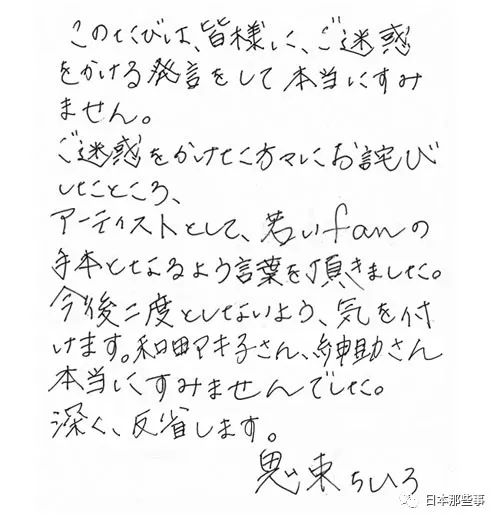 このたびは、皆様に、ご迷惑
をかける発言をして本当にすみ
ません。
ご迷惑をかけた方々にお詫び
したところ、
アーティストとして、若いfanの
手本となるよう言葉を頂きました。
今後二度としないよう、気を付
けます。和田アキ子さん、紳助さん
本当にすみませんでした。
深く、反省します。
鬼束ちひろ
日本那些事